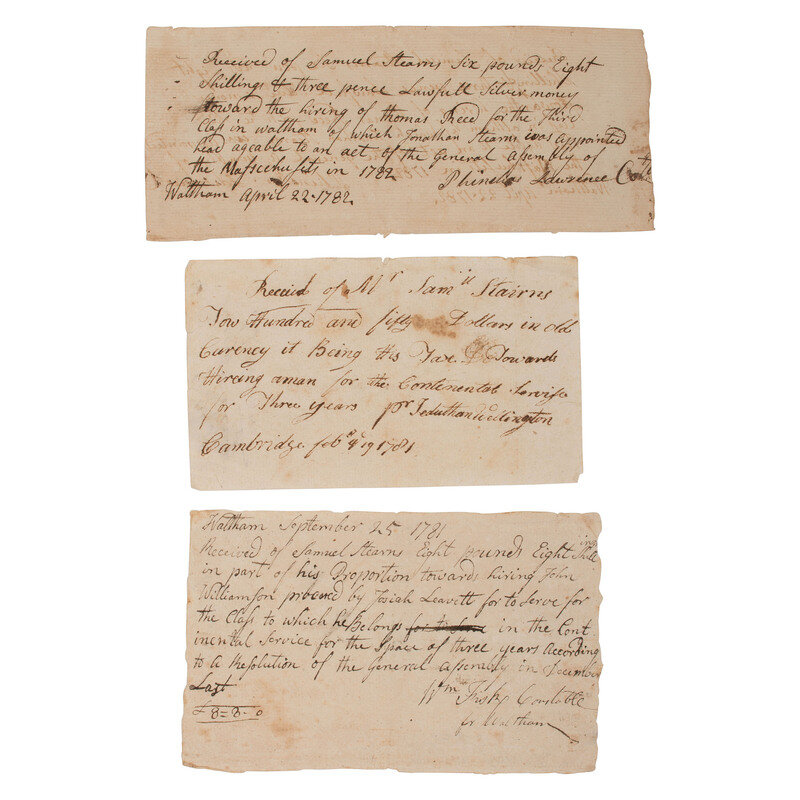 Received of Samuel Stearns Six pounds Eight
Shillings & three pence Lawfull Silver money
toward the hiring of thomas Reed for the Third
Class in waltham of which Jonathan Stearns was appointed
head agcable to an act of the General Assembly of
the Massachusits in 1782 Phinehas Lawrence
Waltham April 22-1782
Receied of Mr Samll Stairns
Tow Hundred and fifty Dollars in old
Curency it Being his Tax Towards
Hireing a man for the Continental Servise
for Three years pr Jeduthan Wellington
Cambridge feb 19 1781
Waltham September 25 1781
Received of Samuel Stearns Eight pounds Eight Shilings
in part of his Proportion towards hiring John
Williamson procured by Josiah Leavett for to Serve for
the Class to which he Belongs for to Serve in the Cont
inental Service for the Space of three years According
to a Resolution of the General Assembly in December
Last
£8=8-0 Wm Fisk Constable
for Waltham